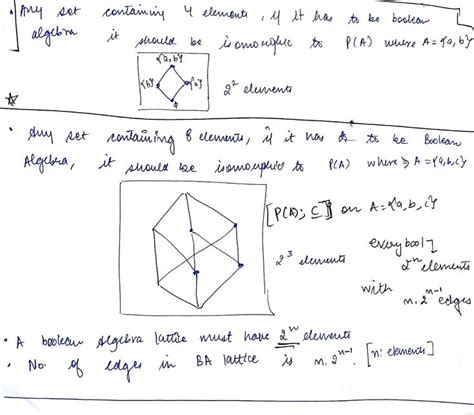 • Any set containing 4 elements, if it has to be boolean
algebra it should be isomorphic to P(A) where A = {a, b}
{a, b}
{b} {a}
2² elements
• Any set containing 8 elements, if it has to be Boolean
Algebra, it should be isomorphic to P(A) where A = {a,b,c}
[P(A); ⊆] on A = {a, b, c}
2³ elements
every bool]
2ⁿ elements
with
n. 2ⁿ⁻¹ edges
• A boolean Algebra lattice must have 2ⁿ elements
• No. of edges in BA lattice is n. 2ⁿ⁻¹. [n: elements]